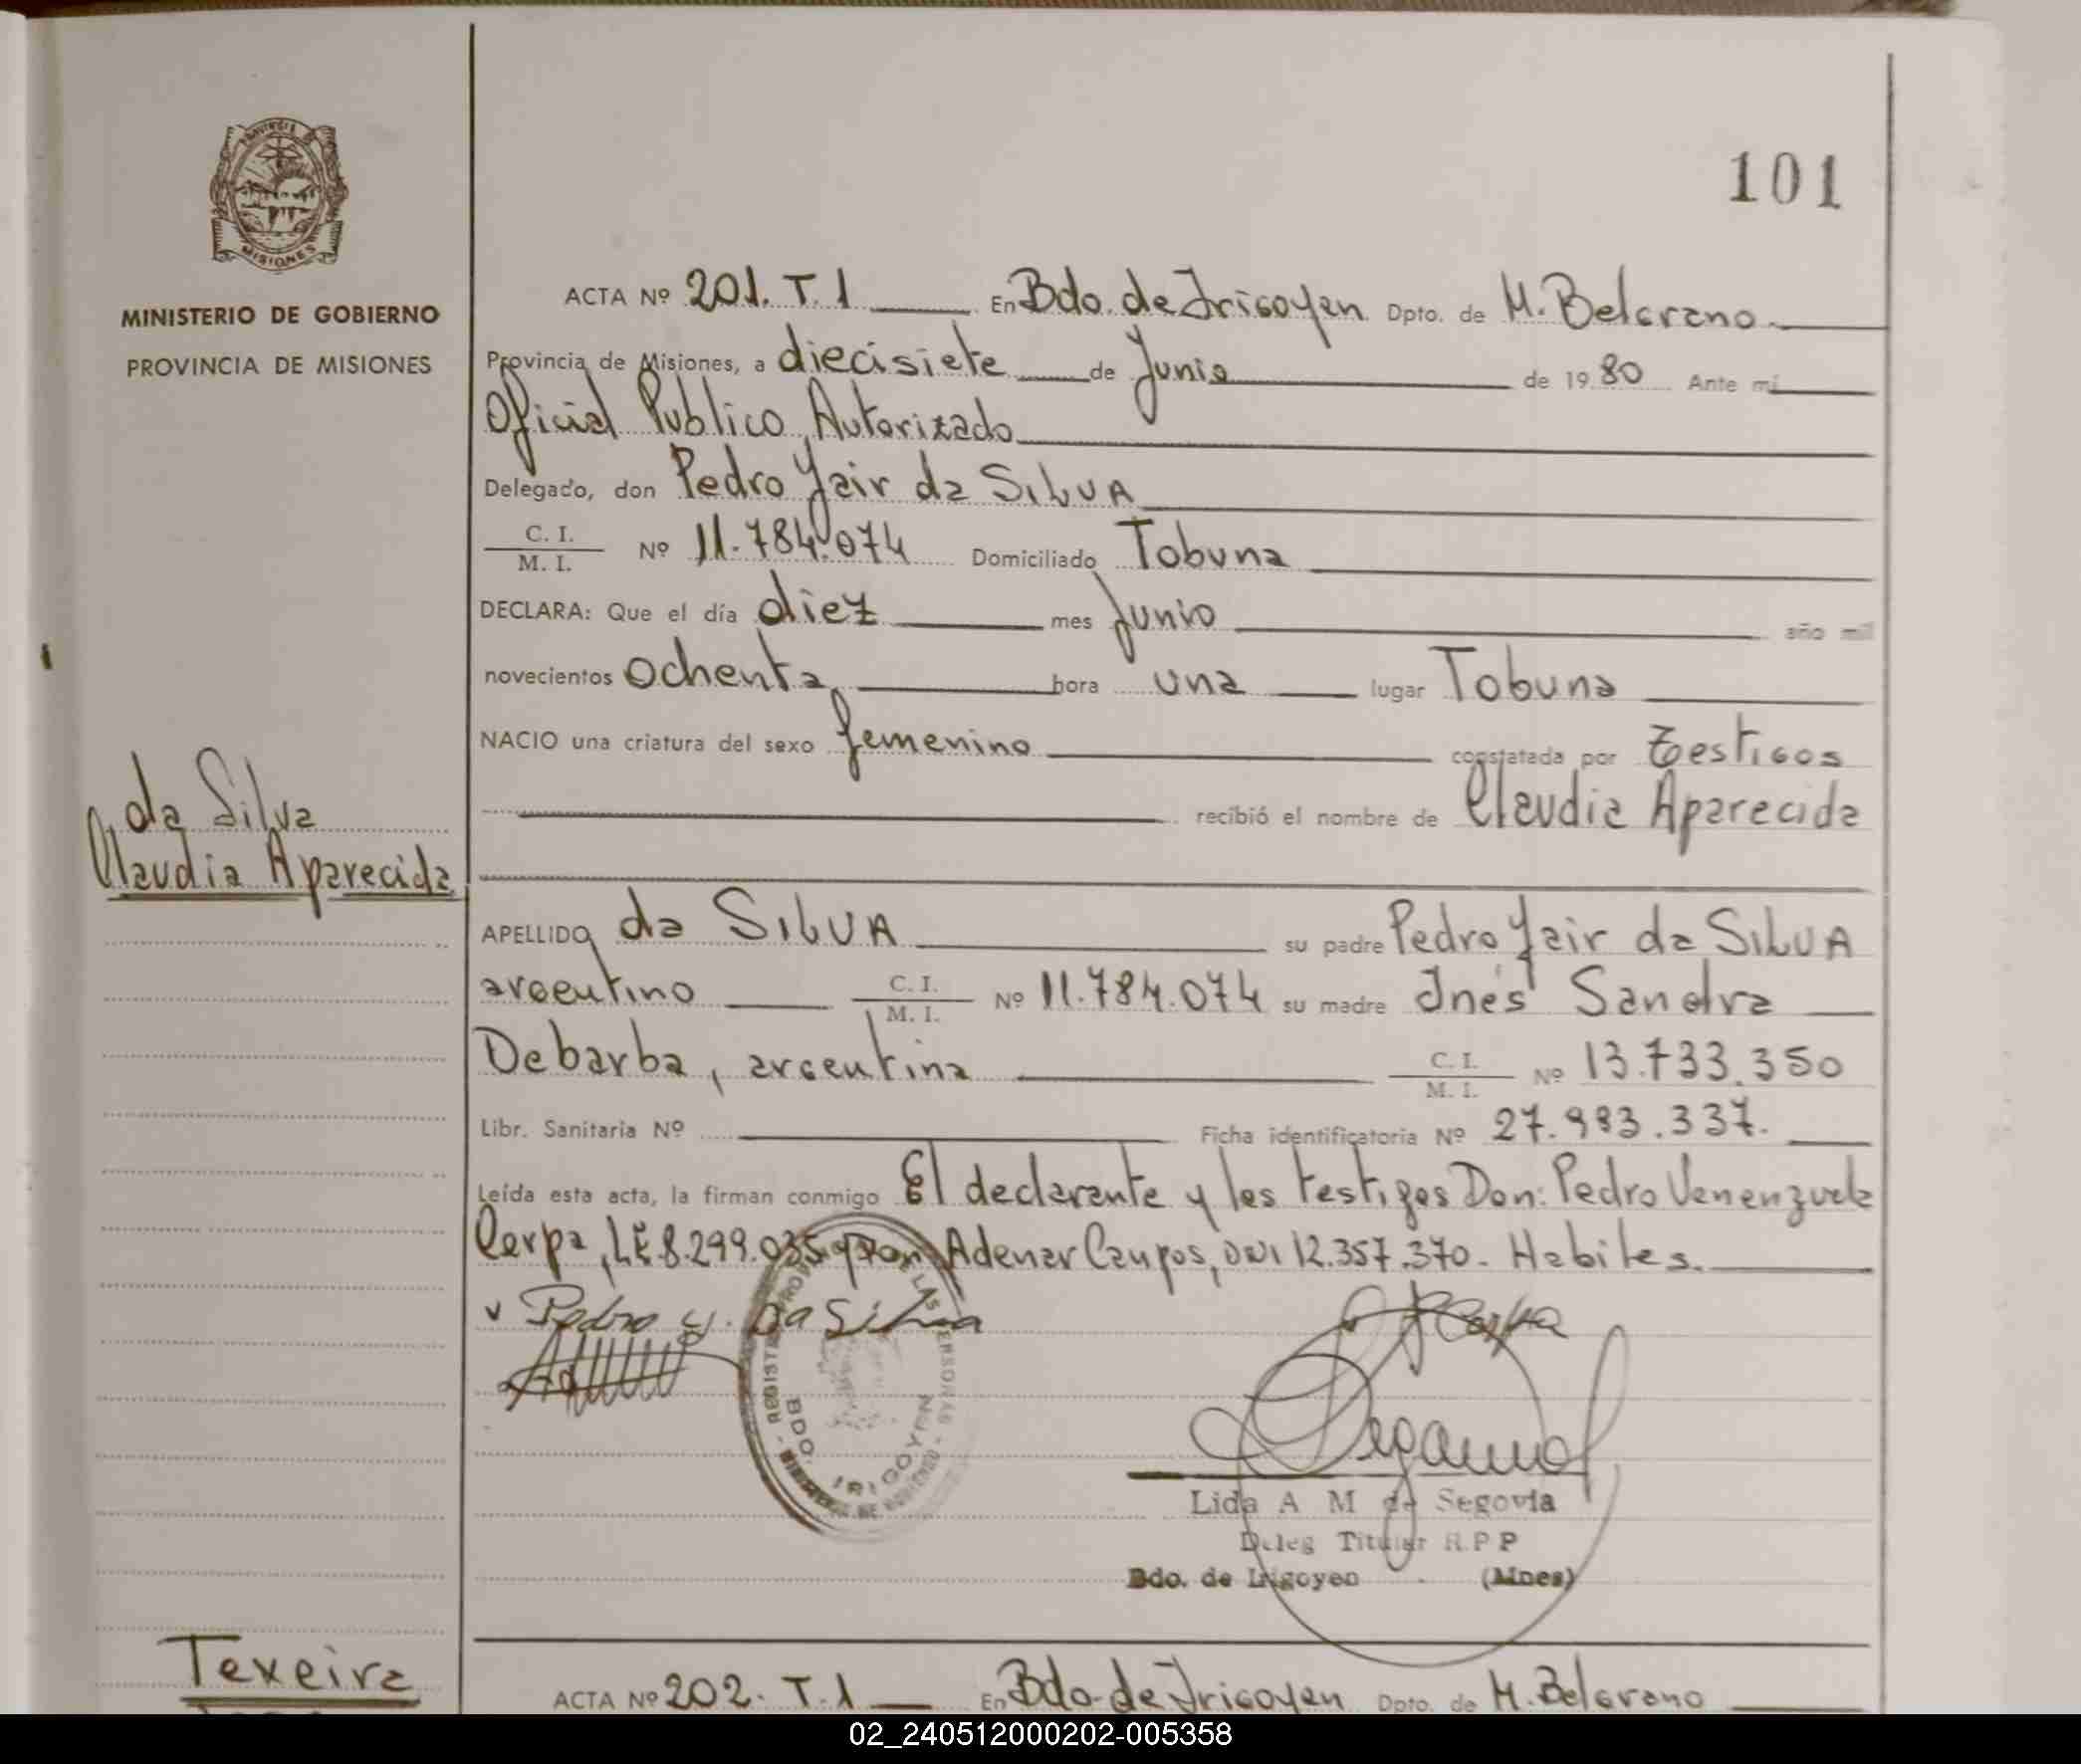 101
PROVINCIA
MISIONES
MINISTERIO DE GOBIERNO
PROVINCIA DE MISIONES
ACTA Nº 201. T. 1 En Bdo. de Irigoyen Dpto. de M. Belgrano
Provincia de Misiones, a diecisiete de Junio de 1980 Ante mi
Oficial Publico Autorizado
Delegado, don Pedro Yair da SILVA
C. I.
M. I. Nº 11.784.074 Domiciliado Tobuna
DECLARA: Que el día diez mes Junio año mil
novecientos ochenta hora una lugar Tobuna
NACIO una criatura del sexo femenino constatada por testigos
recibió el nombre de Claudia Aparecida
da Silva
Claudia Aparecida
APELLIDO da SILVA su padre Pedro Yair da SILVA
argentino C. I. M. I. Nº 11.784.074 su madre Inés Sandra
Debarba, argentina C. I. M. I. Nº 13.733.350
Libr. Sanitaria Nº Ficha identificatoria Nº 27.983.337.
Leída esta acta, la firman conmigo El declarante y los testigos Don: Pedro Venenzuela
Cerpa, LE 8.299.035 y Don Adenar Campos, DNI 12.357.370. Habiles.
v Pedro y. Da Silva
BDO. IRIGOYEN
Lida A M de Segovia
Deleg Titular R.P P
Bdo. de Irigoyen (Mnes)
Texeira
ACTA Nº 202. T. 1 En Bdo. de Irigoyen Dpto. de M. Belgrano
02_240512000202-005358